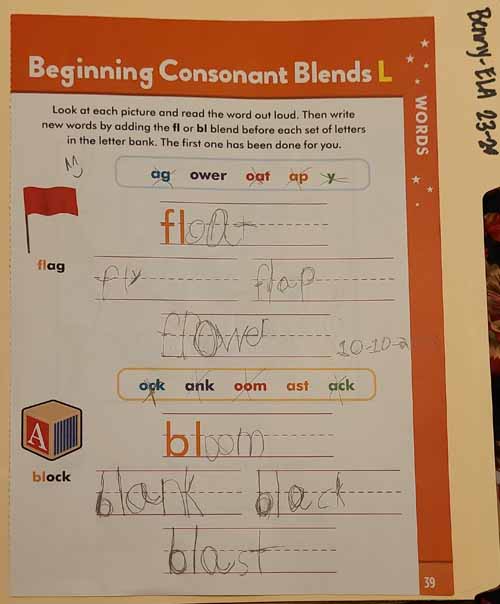 Beginning Consonant Blends L
Look at each picture and read the word out loud. Then write
new words by adding the fl or bl blend before each set of letters
in the letter bank. The first one has been done for you.
ag ower oat ap y
float
flag
fly flap
flower
10-10-2
ock ank oom ast ack
bloom
A
block
blank black
blast
WORDS
39
Benny-ELA 23-24